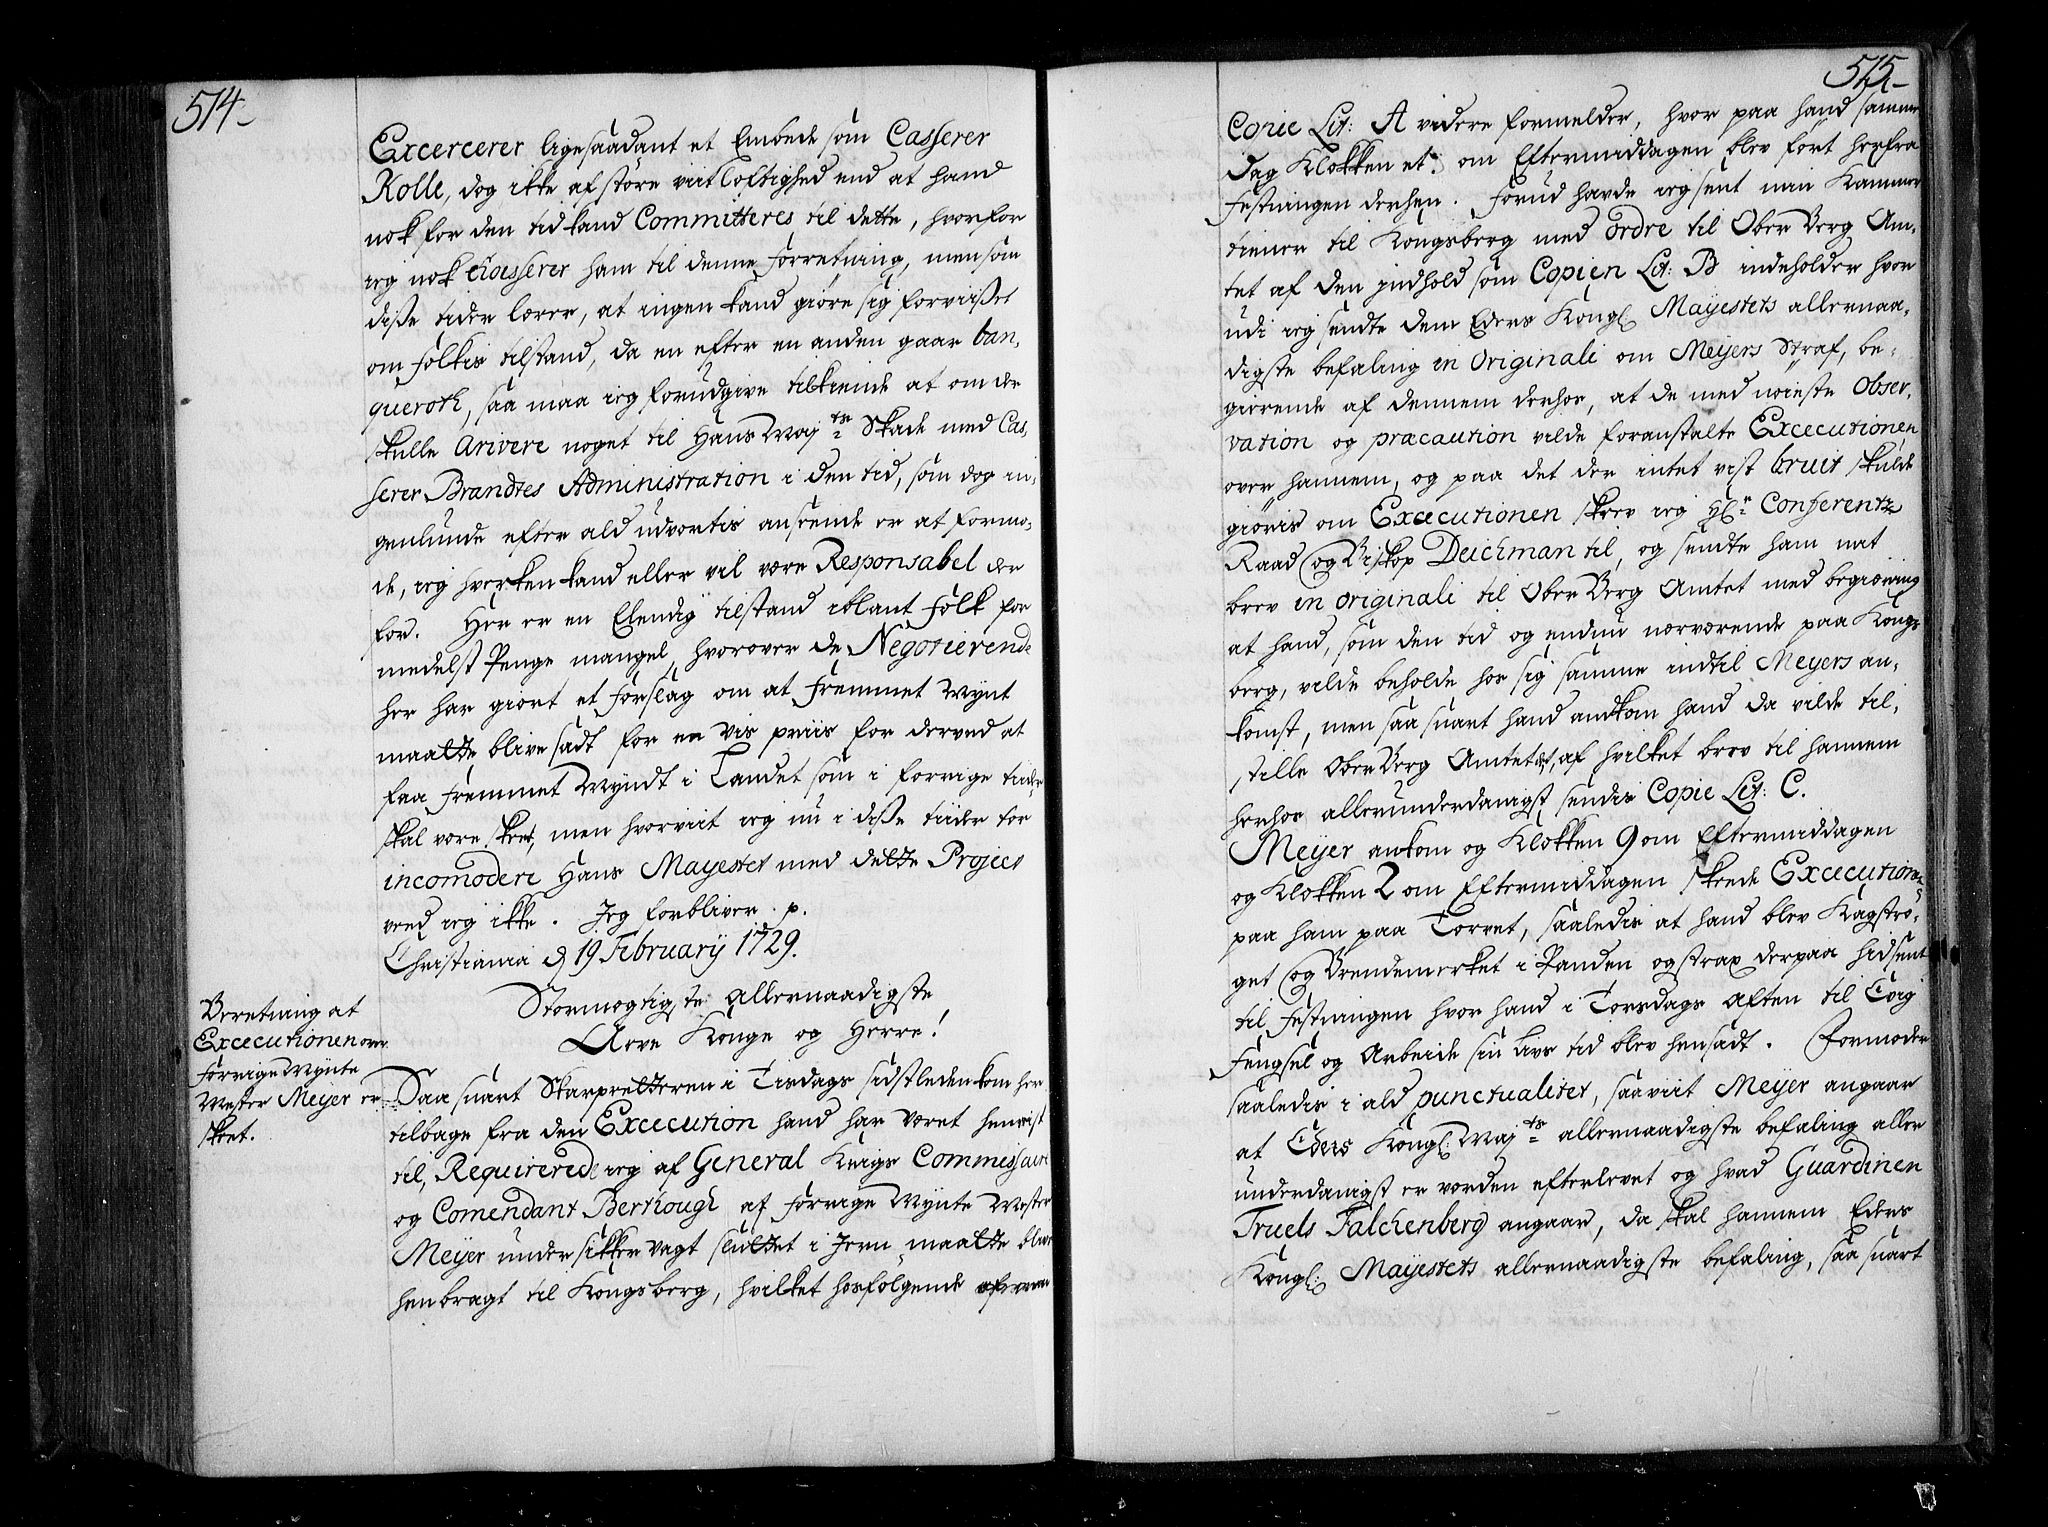 514-
Excercerer ligesaadant et Embede som Casserer
Kolle, dog ikke af større viitløftighed end at hand
nok for den tid kand Committeres til dette, hvorfor
ieg nok choisserer ham til denne forretning, men som
disse tider lærer, at ingen kand giøre sig forviisset
om folkis tilstand, da en efter en anden gaar ban,
queroth, saa maa ieg forud give tilkiende at om der
skulle arivere noget til Hans May:ts Skade med Cas,
serer Brandtes Administration i den tid, som dog in,
genlunde efter ald udvortis anseende er at formo,
de, ieg hverken kand eller vil være Responsabel der
for. Her er en Elendig tilstand iblant folk for
medelst Penge mangel, hvorover de Negotierende
her har giort et forslag om at fremmet Mynt
maatte blive sadt for en vis priis for derved at
faa fremmet Myndt i Landet som i forrige tiider
skal være skeet, men hvorviit ieg nu i disse tiider tør
incomodere Hans Mayestet med dette Project
veed ieg ikke. Jeg forbliver p.
Christiania d 19 February 1729.
Beretning at
Excecutionen over
forrige Mynte
Mester Meyer er
skeet.
Stormægtigste Allernaadigste
Arve Konge og Herre!
Saa snart Skarpretteren i Tirsdags sidstleden kom her
tilbage fra den Excecution hand har været henreist
til, Requirerede ieg af General Krigs Commissaire
og Comendant Berthough af forrige Mynte Mester
Meyer under sikker vagt sluttet i Jern maatte blive
henbragt til Kongsberg, hvilket hosfølgende
515-
Copie Lit: A videre formelder, hvor paa hand samme
dag Klokken et om Eftermiddagen blev ført herfra
Festningen derhen. Forud havde ieg sent min Kammer
tiener til Kongsberg med Ordre til Ober Berg Am,
tet af den indhold som Copien Lit: B indeholder hvor
udi ieg sendte dem Eders Kongl: Mayestets allernaa,
digste befaling in Originali om Meyers Straf, be,
gierende af dennem derhos, at de med nøieste Obser,
vation og præcaution vilde foranstalte Excecutionen
over hannem, og paa det der intet vist bruit skulde
giøris om Excecutionen skrev ieg Hr: Conferentz
Raad og Biskop Deichman til, og sendte ham mit
brev in originali til Ober Berg Amtet med begiering
at hand, som den tid og endnu nærværende paa Kongs
berg, vilde beholde hos sig samme indtil Meyers an,
komst, men saa snart hand ankom hand da vilde til,
stille Ober Berg Amtet det, af hvilket brev til hannem
herhos allerunderdanigst sendis Copie Lit: C.
Meyer ankom og Klokken 9 om Eftermiddagen
og Klokken 2 om Eftermiddagen skeede Excecutionen
paa ham paa Torvet, saaledis at hand blev Kagstrø,
get og Brendemerket i Panden og strax derpaa hidsent
til Festningen hvor hand i Torsdags Aften til Evig
Fengsel og Arbeide sin Livs tid blev hensadt. Formoder
saaledis i ald punctualitet, saaviit Meyer angaar
at Eders Kongl: May:ts allernaadigste befaling aller
underdanigst er vorden efterlevet og hvad Guardinen
Truels Falchenberg angaar, da skal hannem Eders
Kongl: Mayestets allernaadigste befaling, saa snart